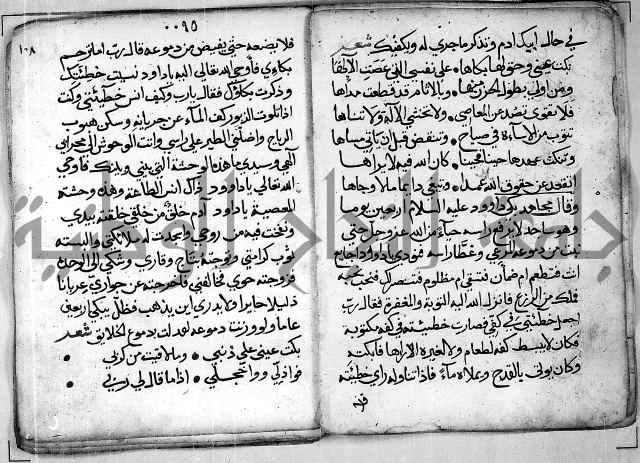 في حال ابيك ادم وتذكر ما جرى له ويكفيك شعر
بكت عيني وحق لها بكاها • على نفسي التي عصت الالها
ومن اولى بطول الحزن منها • وبالاثام قد قطعت مداها
فلا تقوى تصد عن المعاصي • ولا تخشى الاله ولا تناها
تتوب من الاساءة في صباح • وتنقض قبل ان يأتي مساها
وتنكث عهدها حينا فحينا • كان الله فيه لا يراها
اتقعد عن حقوق الله عمدا • وتبغي دائما مالا وجاها
وقال مجاهد بكى داوود عليه السلام اربعين يوما
وهو ساجد لا يرفع راسه حياء من الله عز وجل حتى
نبت من دموعه المرعى وغطا راسه فنودي يا داود اجايع
انت فتطعم ام ضمان فتسقى ام مظلوم فتنتصر لك فنحب نحبة
من الزرع فانزل الله اليه التوبة والمغفرة فقال رب
اجعل خطيئتي في كفي فصارت خطيئته في كفه مكتوبة
فكان لا يبسط كفه لطعام ولا لغيره الا راها فابكته
وكان يوتى بالقدح ويملاه ماء فاذا تناوله راى خطيئته
فلا
٠٠٩٥
١٠٨
فلا يضعه حتى يفيض من دموعه قال رب اما ترحم
بكاءي فاوحى الله تعالى اليه يا داود نسيت خطيئتك
وذكرت بكاؤك فقال يا رب وكيف انسى خطيئتي وكنت
اذا تلوت الزبور كف الماء عن جريانه وسكن هبوب
الرياح واضلتني الطير على راسي وانت الوحوش الى محرابي
الهي وسيدي ما هذه الوحشة التي بيني وبينك فاوحى
الله تعالى يا داوود ذاك انس الطاعة وهذه وحشة
المعصية يا داود آدم خلق من خلقي خلقته بيدي
ونفخت فيه من روحي واسجدت له ملائكتي والبسته
ثوب كرامتي وتوجته بتاج وقاري وشكى الى الوحدة
فزوجته حوى فخالفني فاخرجته عن جواري عريانا
ذليلا حايرا ولا يدري اين يذهب فظل يبكي اربعين
عاما ولو وزنت دموعه لعدلت بدموع الخلايق شعر
بكت عيني على ذنبي • وما لاقيت من كربي
فواذلي وواخجلي • اذا ما قال لي ربي
جامعة النجاح الوطنية